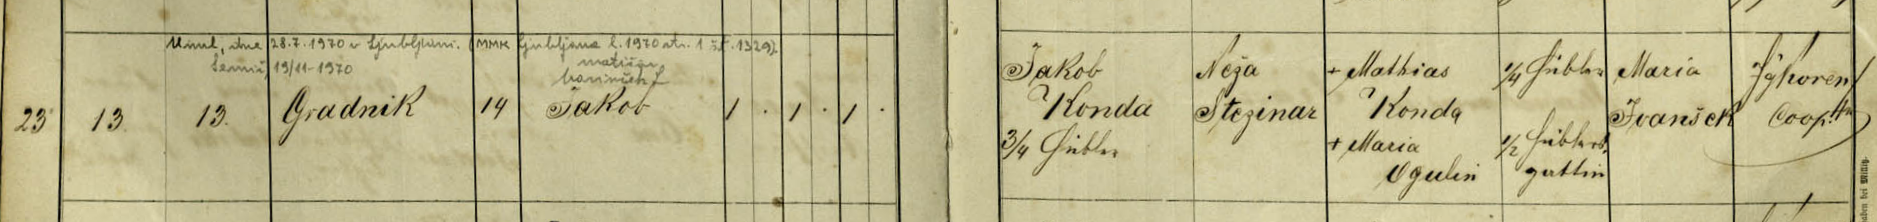 Umrl, dne 28.7.1970 v Ljubljani. (MMK Ljubljana l. 1970 str. 1 št. 1329).
Semič, 19/11-1970 matičar
23 13. 13. Gradnik 14 Jakob 1 . 1 . 1 .
Jakob
Konda
3/4 Hübler
Neža
Stezinar
+ Mathias
Konda
+ Maria
Ogulin
1/4 Hübler
1/2 Hüblers
gattin
Maria
Ivanšek
Coop.